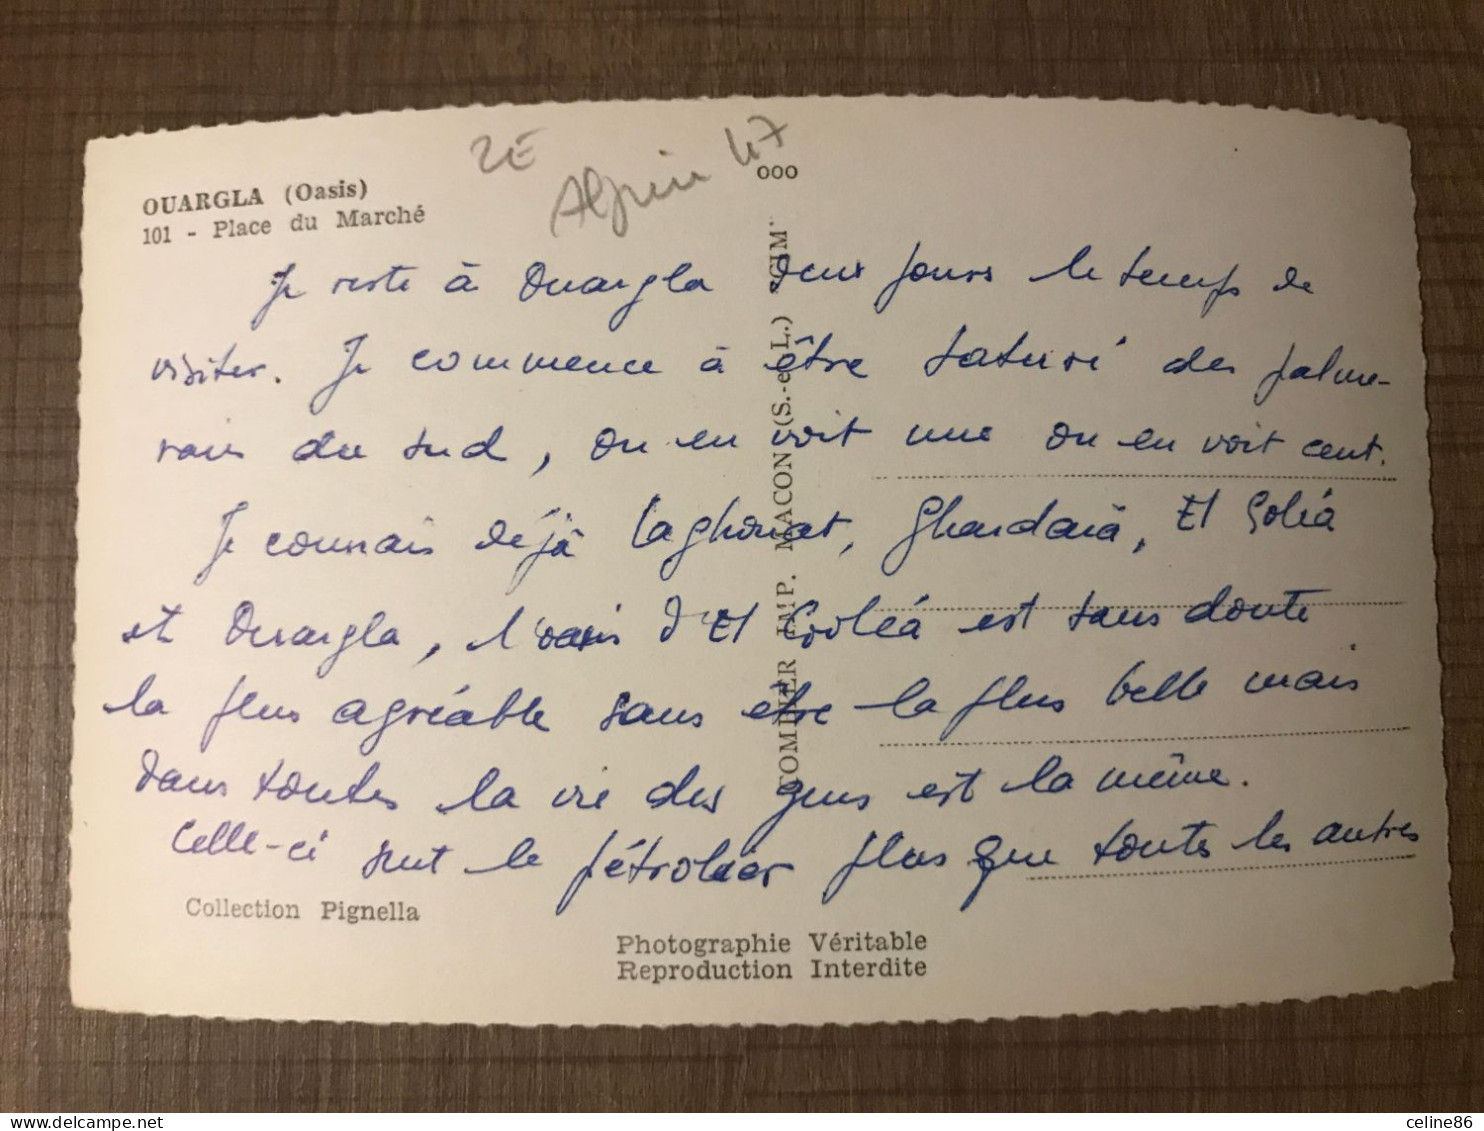 2E
47
000
OUARGLA (Oasis)
101 - Place du Marché
Je reste à Ouargla deux jours le temps de
visiter. Je commence à être saturé des palme-
raies du sud, on en voit une on en voit cent.
Je connais déjà Laghouat, Ghardaïa, El Goléa
et Ouargla, l'oasis d'El Goléa est sans doute
la plus agréable sans être la plus belle mais
dans toutes la vie des gens est la même.
Celle-ci sent le pétrolier plus que toutes les autres
COMBIER IMP. MACON (S.-et-L.) "CIM"
Collection Pignella
Photographie Véritable
Reproduction Interdite
celine86